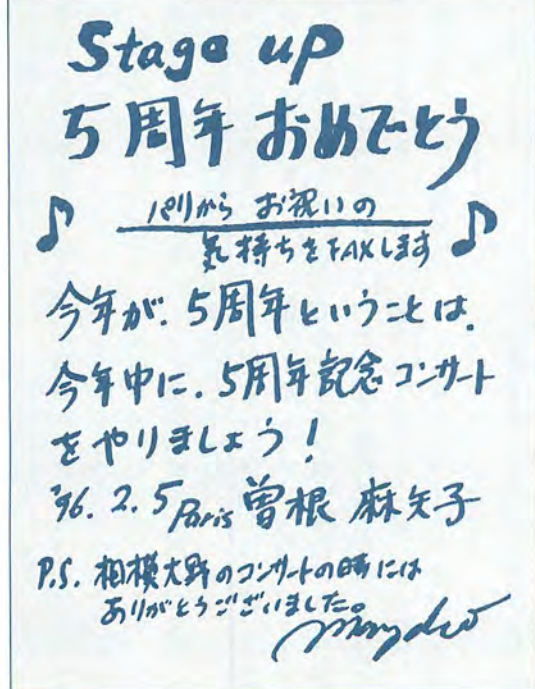 Stage up
5周年 おめでとう
♪ パリから お祝いの ♪
気持ちをFAXします
今年が、5周年ということは、
今年中に、5周年記念コンサート
をやりましょう!
'96. 2. 5 Paris 曽根 麻矢子
P.S. 相模大野のコンサートの時には
ありがとうございました。